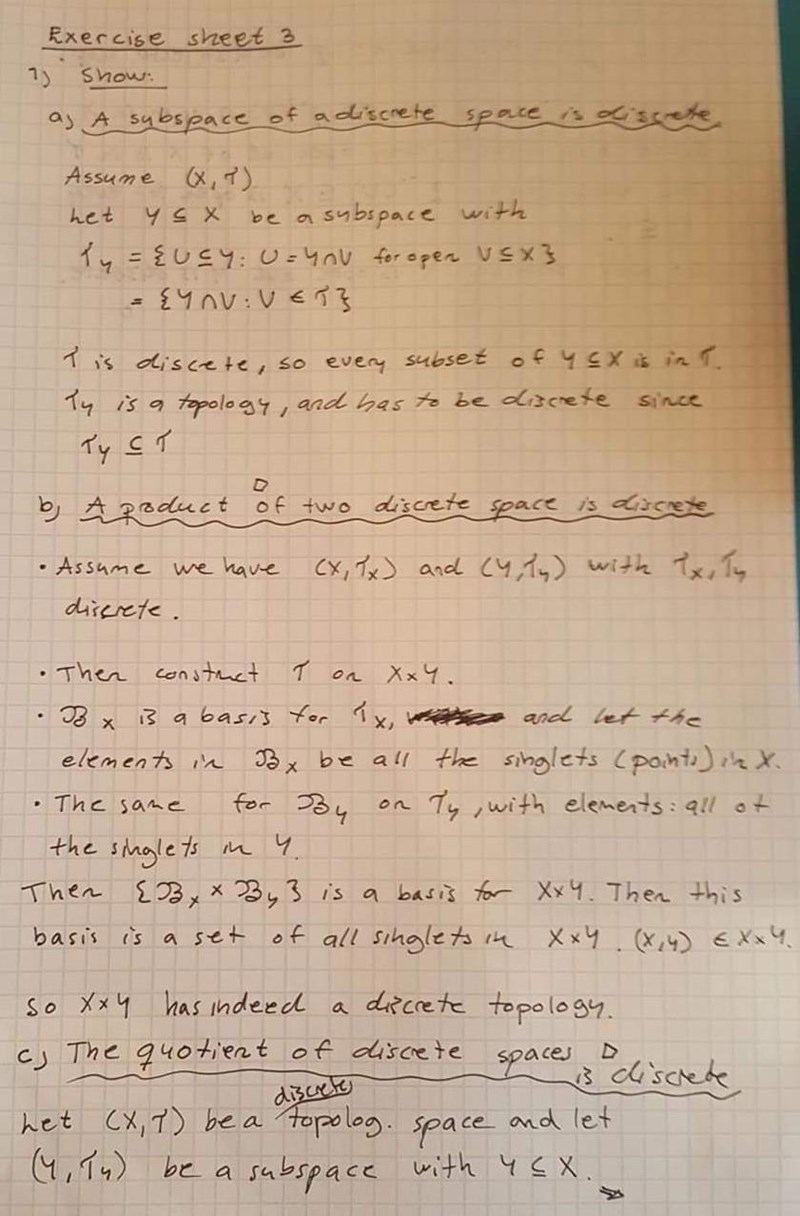 Exercise sheet 3
1) Show:
a) A subspace of a discrete space is discrete
Assume (X, τ)
Let Y ⊆ X be a subspace with
τ_Y = {U ⊆ Y: U = Y∩V for open V ⊆ X}
= {Y∩V : V ∈ τ}
τ is discrete, so every subset of Y ⊆ X is in τ.
τ_Y is a topology, and has to be discrete since
τ_Y ⊆ τ
□
b) A product of two discrete space is discrete
• Assume we have (X, τ_X) and (Y, τ_Y) with τ_X, τ_Y
discrete.
• Then construct τ on X×Y.
• B_X is a basis for τ_X, and let the
elements in B_X be all the singlets (points) in X.
• The same for B_Y on τ_Y, with elements: all of
the singlets in Y.
Then {B_X × B_Y} is a basis for X×Y. Then this
basis is a set of all singlets in X×Y. (x,y) ∈ X×Y.
So X×Y has indeed a discrete topology.
□
c) The quotient of discrete spaces is discrete
Let (X, τ) be a discrete topolog. space and let
(Y, τ_Y) be a subspace with Y ⊆ X.